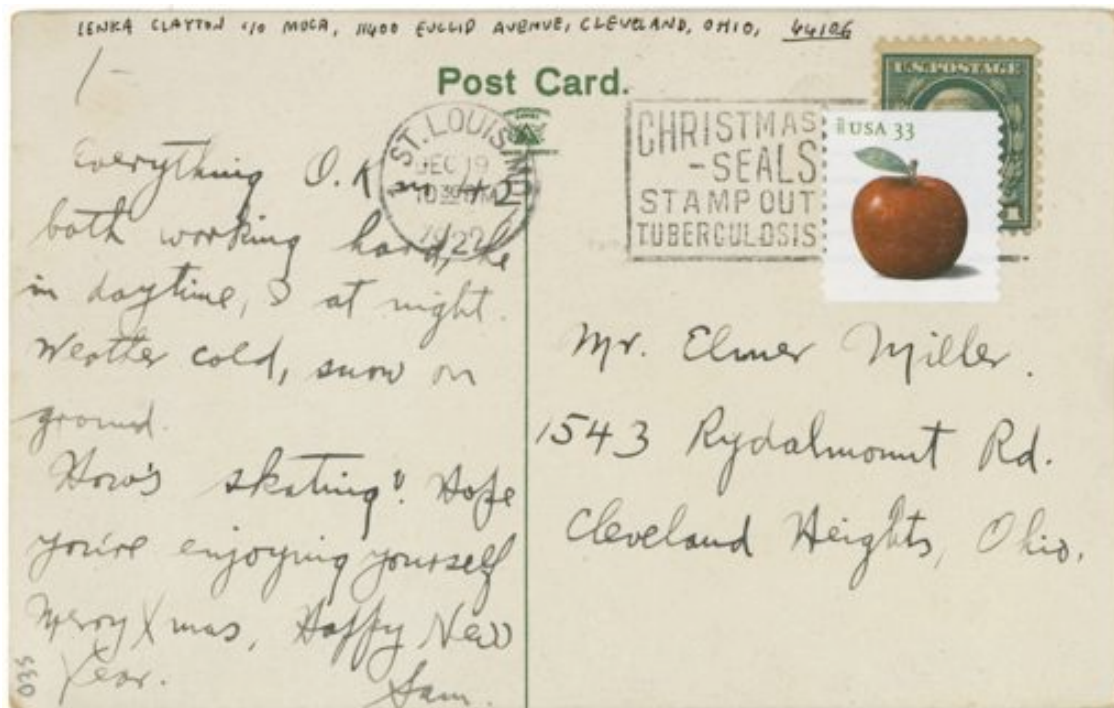 LENKA CLAYTON c/o MOCA, 11400 EUCLID AVENUE, CLEVELAND, OHIO, 44106
1-
Post Card.
ST. LOUIS, MO.
DEC 19
10 30 PM
1922
CHRISTMAS
-SEALS
STAMP OUT
TUBERCULOSIS
U.S. POSTAGE
1
USA 33
Everything O.K.
both working hard, he
in daytime, I at night.
Weather cold, snow on
ground.
How's skating? Hope
you're enjoying yourself
Merry Xmas, Happy New
Year.
Sam.
035
Mr. Elmer Miller.
1543 Rydalmount Rd.
Cleveland Heights, Ohio.